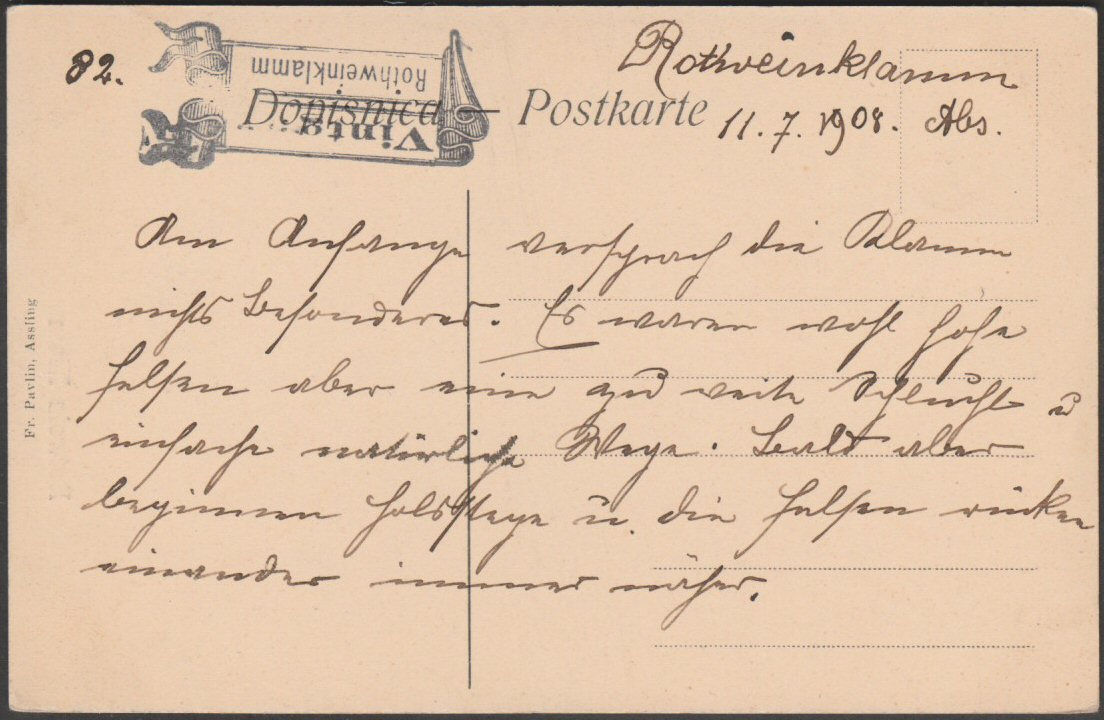 82.
Rothweinklamm
Vintgar
Dopisnica — Postkarte
Rothweinklamm
11. 7. 1908. Abs.
Am Anfange versprach die Klamm
nichts Besonderes. Es waren wohl hohe
Felsen aber eine weite Schlucht u
einfache natürliche Wege. Bald aber
beginnen Holzstege u. die Felsen rücken
einander immer näher.
Fr. Pavlin, Assling